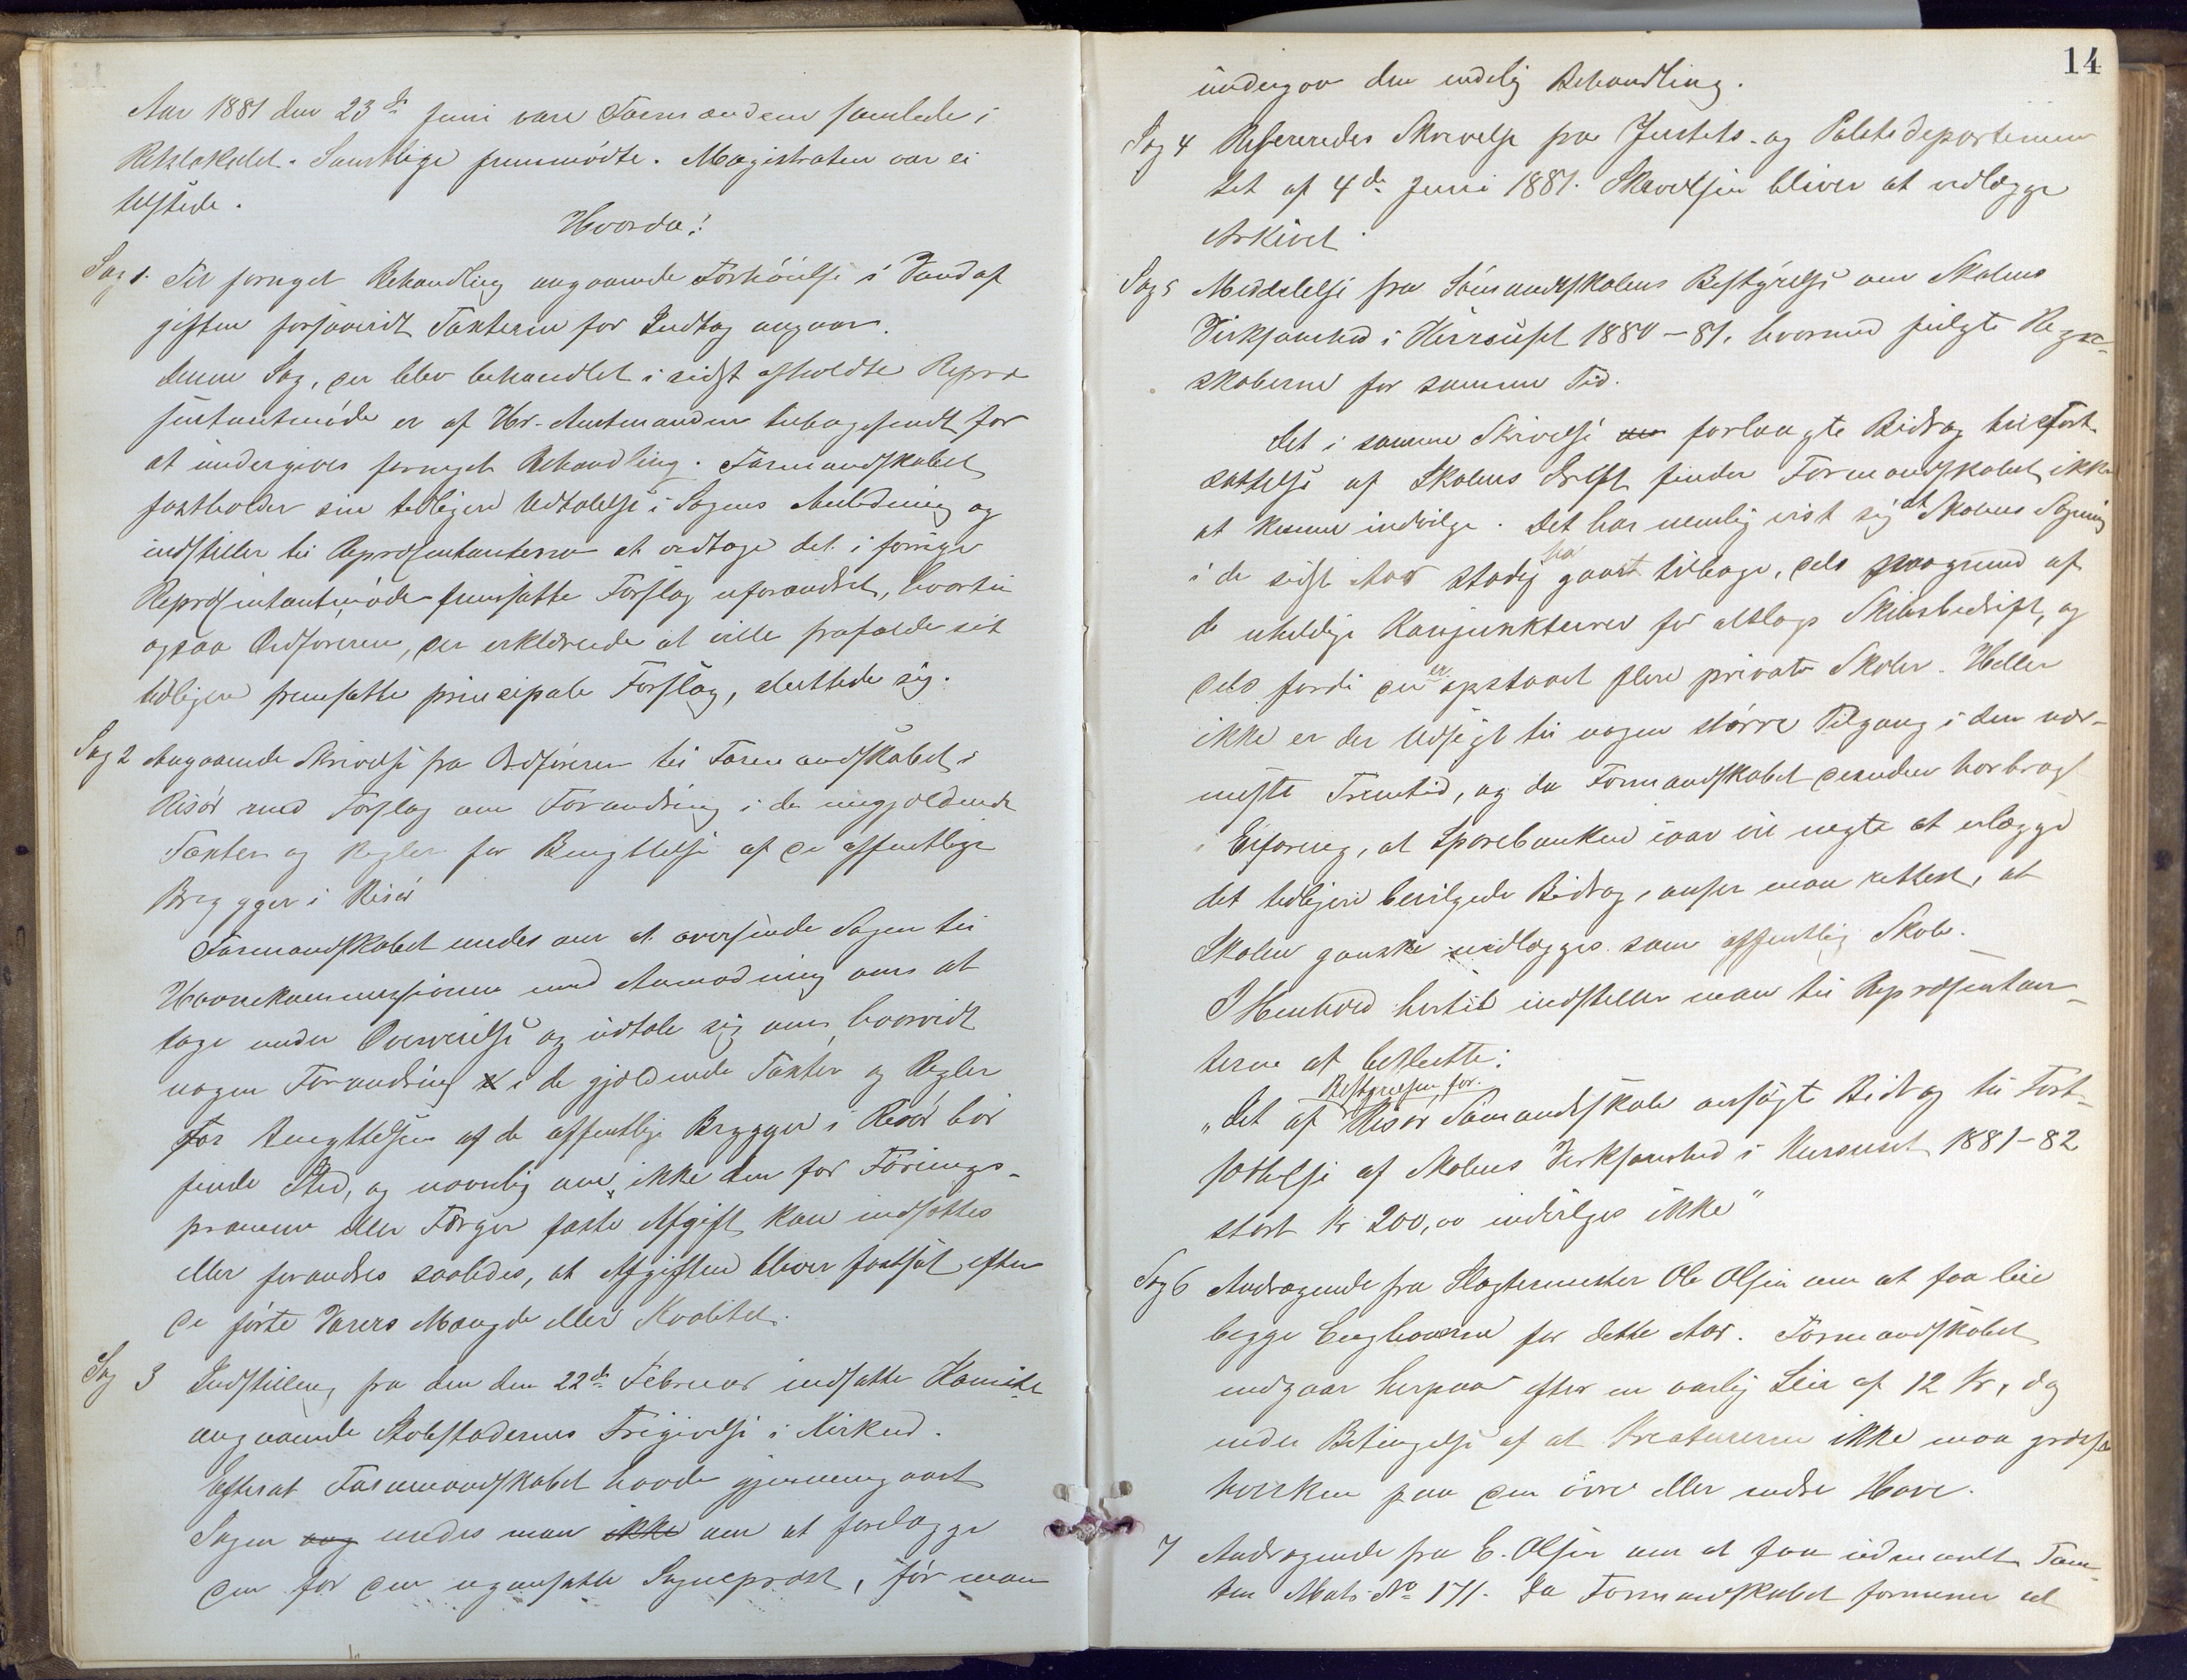 Aar 1881 den 23de Juni vare Formændene samlede i
Retslokalet. Samtlige fremmødte. Magistraten var ei
tilstede.
Hvorda!
Sag 1. Til fornyet Behandling angaaende Forhøielse i Vandaf
giften forsaavidt Taxterne for Indtag angaar.
denne Sag, der blev behandlet i sidst afholdte Repræ
sentantmøde er af Hr. Amtmanden tilbagesendt for
at undergives fornyet Behandling. Formandskabet
fastholder sin tidligere Udtalelse i Sagens Anledning og
indstiller til Repræsentanterne at vedtage det i forrige
Repræsintantmøde fremsatte Forslag uforandret, hvortil
ogsaa Ordføreren, der erklærede at ville frafalde sit
tidligere fremsatte principale Forslag, sluttede sig.
Sag 2 Angaaende Skrivelse fra Ordføreren til Formandskabet i
Risør med Forslag om Forandring i de nugjældende
Taxter og Regler for Benyttelse af de offentlige
Brygger i Risør
Formandskabet enedes om at oversende Sagen til
Havnekommissionen med Anmodning om at
tage under Overveielse og udtale sig om, hvorvidt
nogen Forandring i de gjældende Taxter og Regler
for Benyttelsen af de offentlige Brygger i Risør bør
finde Sted, og navnlig om ikke den for Førings-
pramme eller Færger faste Afgift kan nedsættes
eller forandres saaledes, at Afgiften bliver fastsat efter
de førte Varers Mængde eller Kvalitet.
Sag 3 Indstilling fra den den 22de Februar indsatte Komite
angaaende Stolestadernes Frigivelse i Kirken.
Efterat Formandskabet havde gjennemgaaet
Sagen aag enedes man ikke om at forelægge
den for den nyansatte Sogneprest, før man
14
undergaa den endelig Behandling.
Sag 4 Refereredes Skrivelse fra Justits- og Politidepartemen
tet af 4de Juni 1881. Skrivelsen bliver at vedlægge
Arkivet.
Sag 5 Meddelelse fra Sømandsskolens Bestyrelse om Skolens
Virksomhed i Kursuset 1880-81, hvormed fulgte Regn-
skaberne for samme Tid.
Det i samme Skrivelse om forlangte Bidrag til Fort-
sættelse af Skolens Drift finder Formandskabet ikke
at kunne indvilge. Det har nemlig vist sig at Skolens Søgning
i de sidste Aar stadig har gaaet tilbage, dels paagrund af
de uheldige Konjunkturer for altslags Skibsbedrift, og
dels fordi der er opstaaet flere private Skoler. Heller
ikke er der Udsigt til nogen større Tilgang i den nær-
meste Fremtid, og da Formandskabet desuden har bragt
i Erfaring, at Sparebanken iaar vil negte at erlægge
det tidligere bevilgede Bidrag, anser man rettest, at
Skolen ganske nedlægges som offentlig Skole.
I Henhold hertil indstiller man til Repræsentan-
terne at beslutte:
"Det af Bestyrelsen for Risør Sømandsskole ansøgte Bidrag til Fort-
sættelse af Skolens Virksomhed i Kursuset 1881-82
stort Kr 200,00 indvilges ikke"
Sag 6 Andragende fra Slagtermester Ole Olsen om at faa leie
begge Enghaverne for dette Aar. Formandskabet
indgaar herpaa efter en aarlig Leie af 12 Kr, dog
under Betingelse af at Kreaturerne ikke maa græsse
hverken paa den øvre eller nedre Have.
7 Andragende fra E. Olsen om at faa udmaalt Tom-
ten Mats No 171. Da Formandskabet formener at